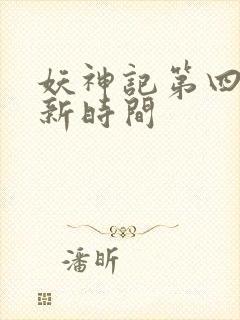 妖神記第四
新時間
潘昕